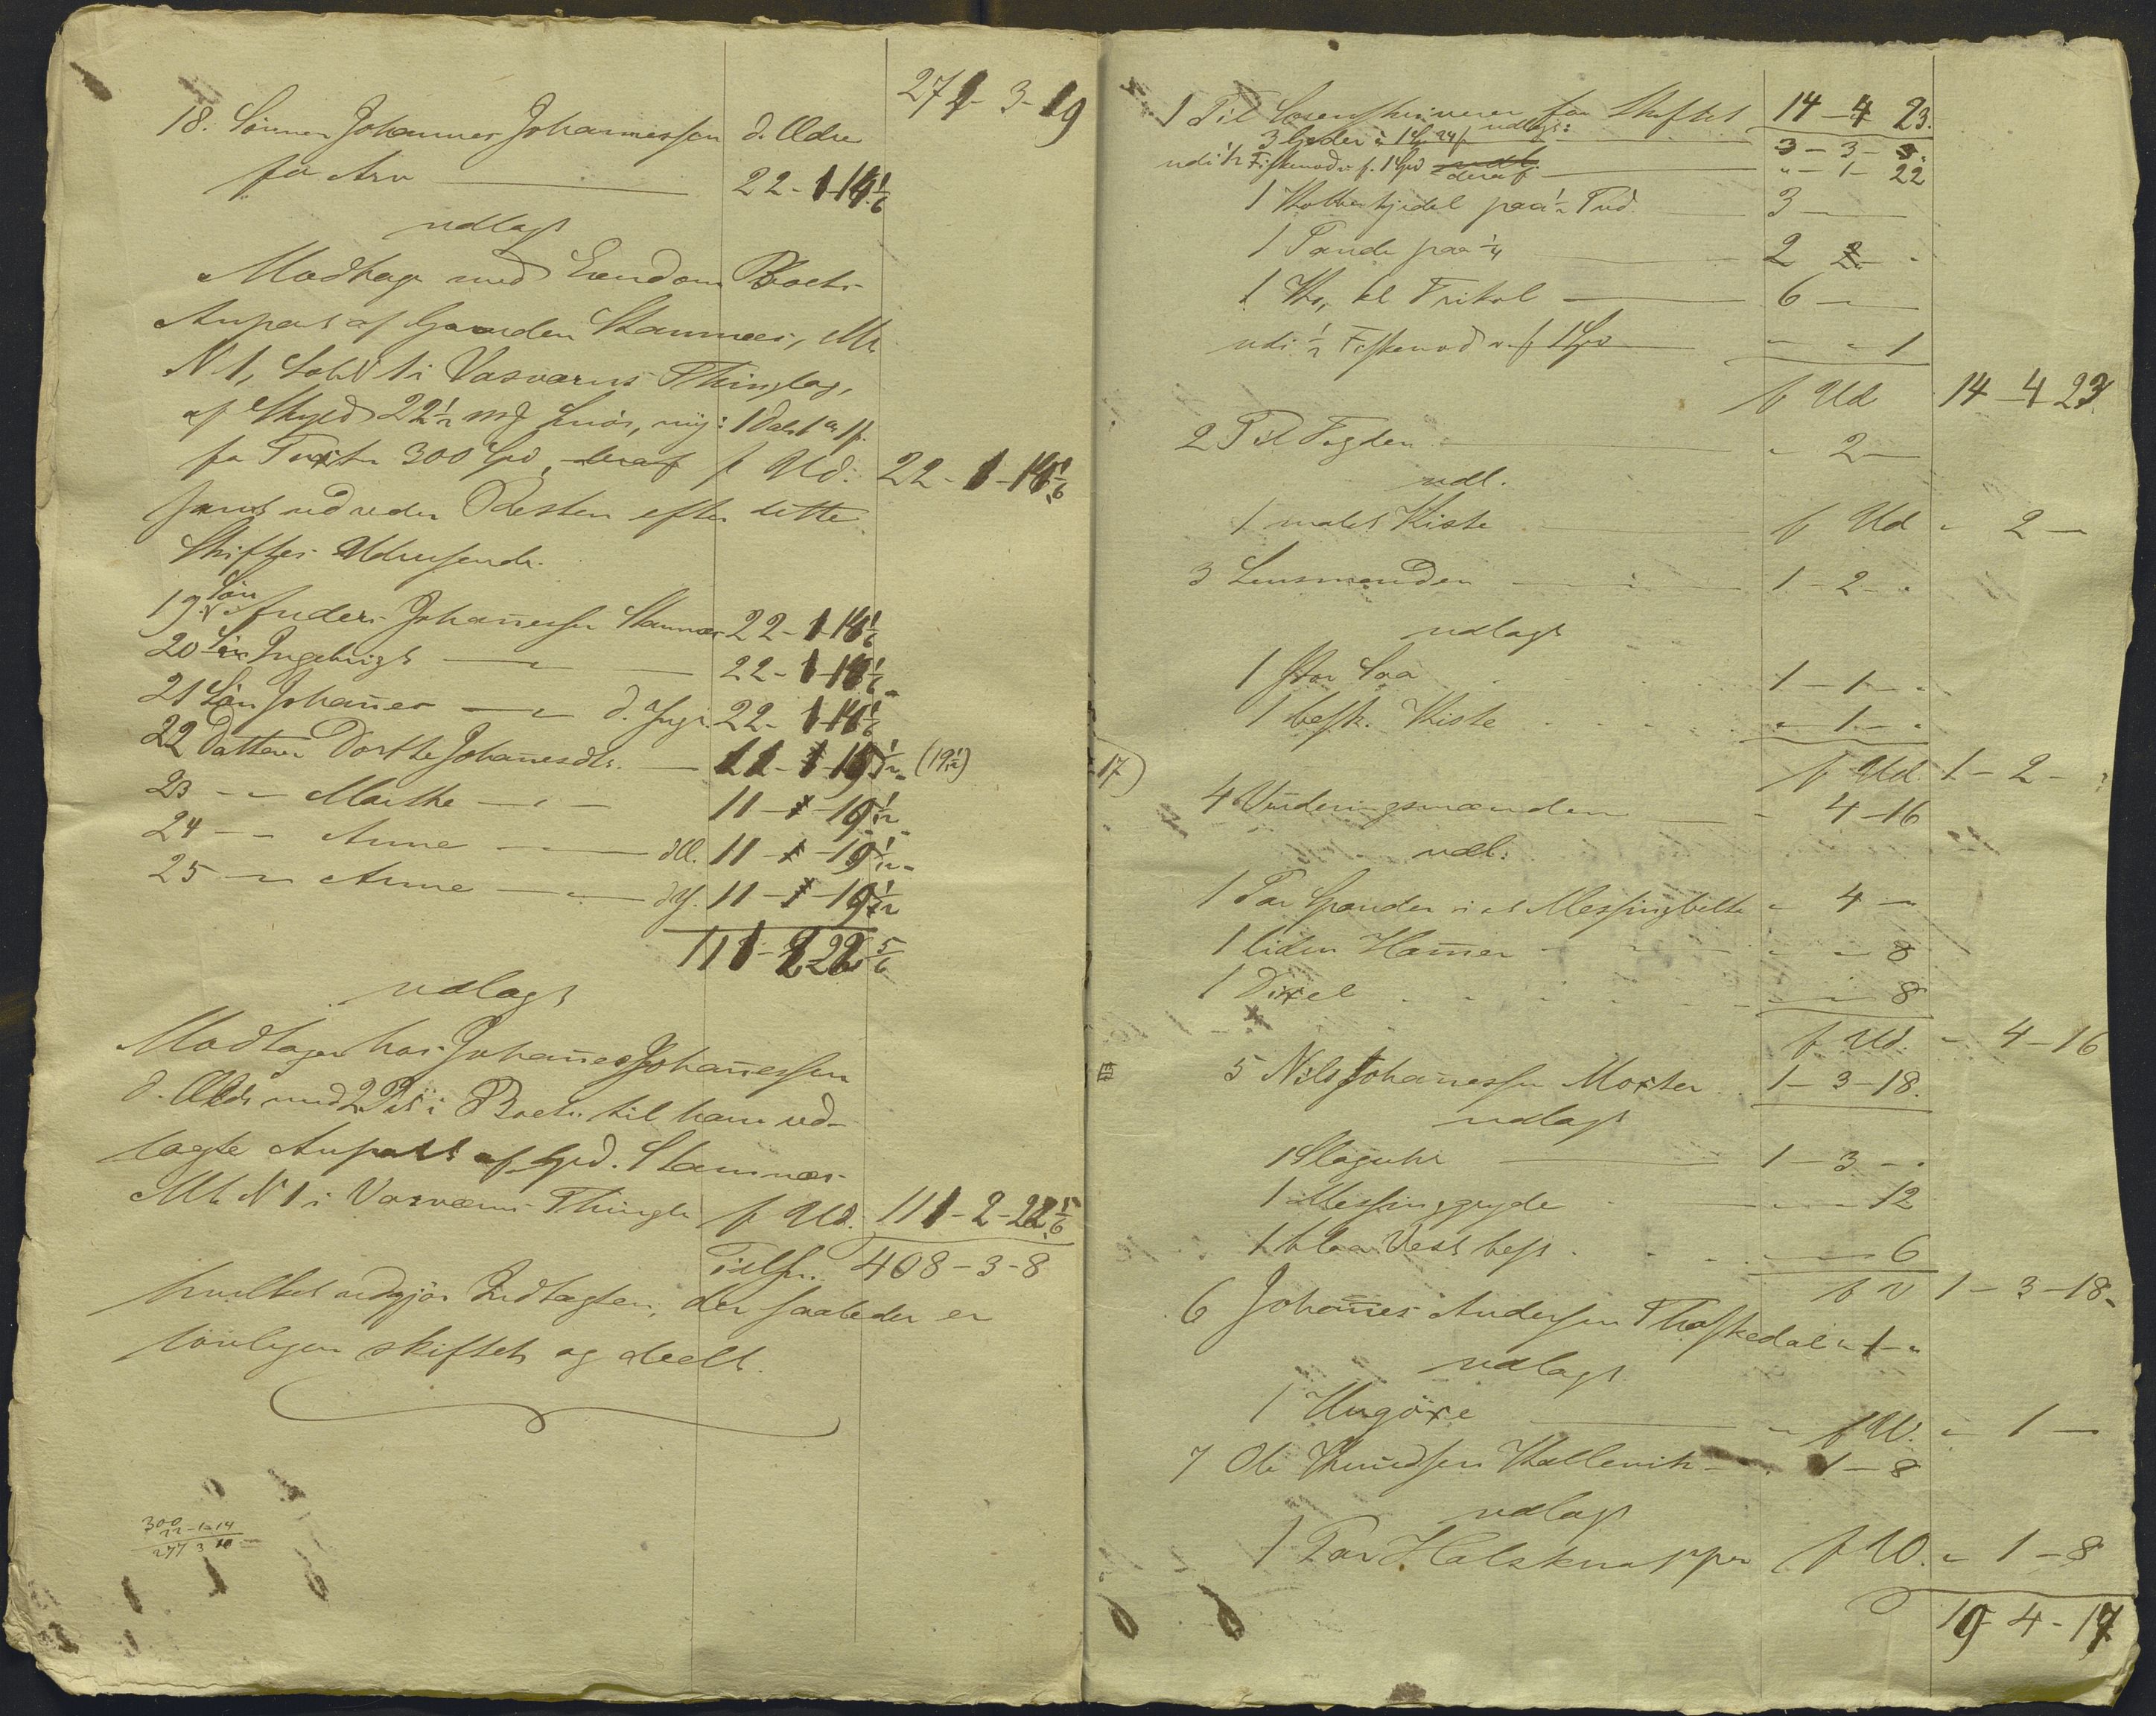 274-3-19
18. Sønnen Johannes Johannessen d. Ældre
for Arv 22-1-14 1/6
udlagt
Modtage med Eendom Boets
Anpart af Gaarden Stamnæs, Mt.
N 1, Løb N 1 i Vosværns Thinglag,
af Skyld 22½ mȝ Smör, ny: 1 Dal. 1 ß.
for Taxten 300 Spd, deraf f Ud. 22-1-14 1/6
Resten efter dette
Skiftes Udvisende.
19 Søn Anders Johannessen Stamnæs 22-1-14 1/6
20 Søn Ingebrigt 22-1-14 1/6
21 Søn Johannes d. Yngr. 22-1-14 1/6
22 Datteren Dorthe Johannesdtr. 11-19 1/12 (19 1/12)
23 Marthe 11-19 1/12
24 Anne d Æ. 11-19 1/12
25 Anne d Y. 11-19 1/12
111-2-22 5/6
udlagt
Modtages hos Johannes Johannessen
d. Ældr. med i Boets til ham ud-
lagte Anpart af Grd. Stamnæs
Mt. N 1 i Vosværns Thingl. f Ud. 111-2-22 5/6
Tilsm. 408-3-8
hvilket udgjør Indtægten, der saaledes er
lovligen skiftet og deelt.
300
22-1-14
277 3 10
1 Til Sorenskriveren for Skiftet 14-4 23.
3 Gjeder à 1 Spd 24 ß udlagt: 3-3-
udi ½ Fiskenod f. 1 Spd deraf " -1-22
1 Kobberkjedel paa ½ Tud. 3
1 Pande paa ¼ 2 2
1 Ko, kl Frikol 6
udi ½ Fiskenod f 1 Spd " " 1
f Ud 14-4 23
2 Til Fogden " 2
udl.
1 malet Kiste f Ud " 2
3 Lensmanden 1-2-"
udlagt
1 stor Saa 1-1-"
1 besk. Kiste " 1-"
f Ud. 1-2-"
17)
4 Vurderingsmændene " 4-16
udl:
1 Par Spænder i et Messingbelte " 4
1 liden Hamer " " 8
1 Dixel " " 8
f Ud. " 4-16
5 Nils Johannessen Moster 1-3-18.
udlagt
1 Slaguhr 1-3-"
1 Messinggryde " " 12
1 blaa Vest besk. " " 6
f U 1-3-18
6 Johannes Andersen Thoskedal " 1 "
udlagt
1 Hugöxe f U. " 1
7 Ole Knudsen Kallevik " 1-8
udlagt
1 Par Halsknapper f U. " 1-8
19 4-17